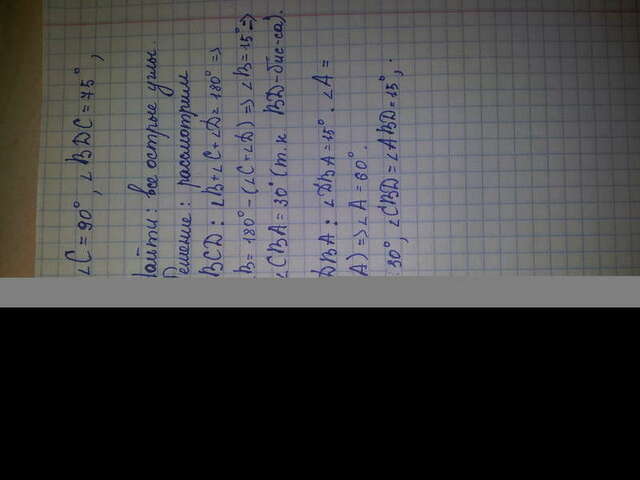 ∠C = 90°, ∠BDC = 75°
Найти: все острые углы.
Решение: рассмотрим
BCD: ∠B+∠C+∠D=180° =>
B = 180° - (∠C+∠D) => ∠B = 15° =>
∠CBA = 30° (т.к BD-бис-са).
DBA: ∠DBA = 15°. ∠A =
A) => ∠A = 60°.
30°, ∠CBD = ∠ABD = 15°;